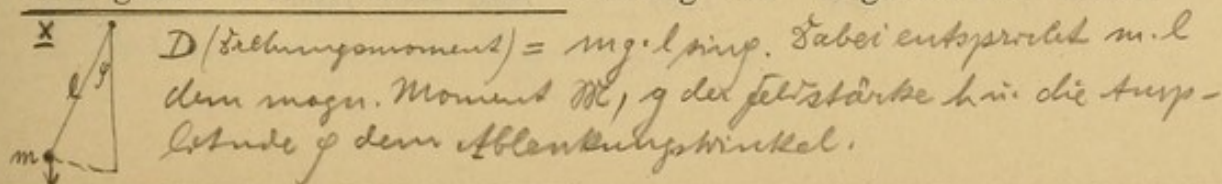 x D (Drehungsmoment) = mg·l sin φ. Dabei entspricht m·l
l φ dem magn. Moment M, g der Feldstärke h u. die Amp-
m litude φ dem Ablenkungswinkel.